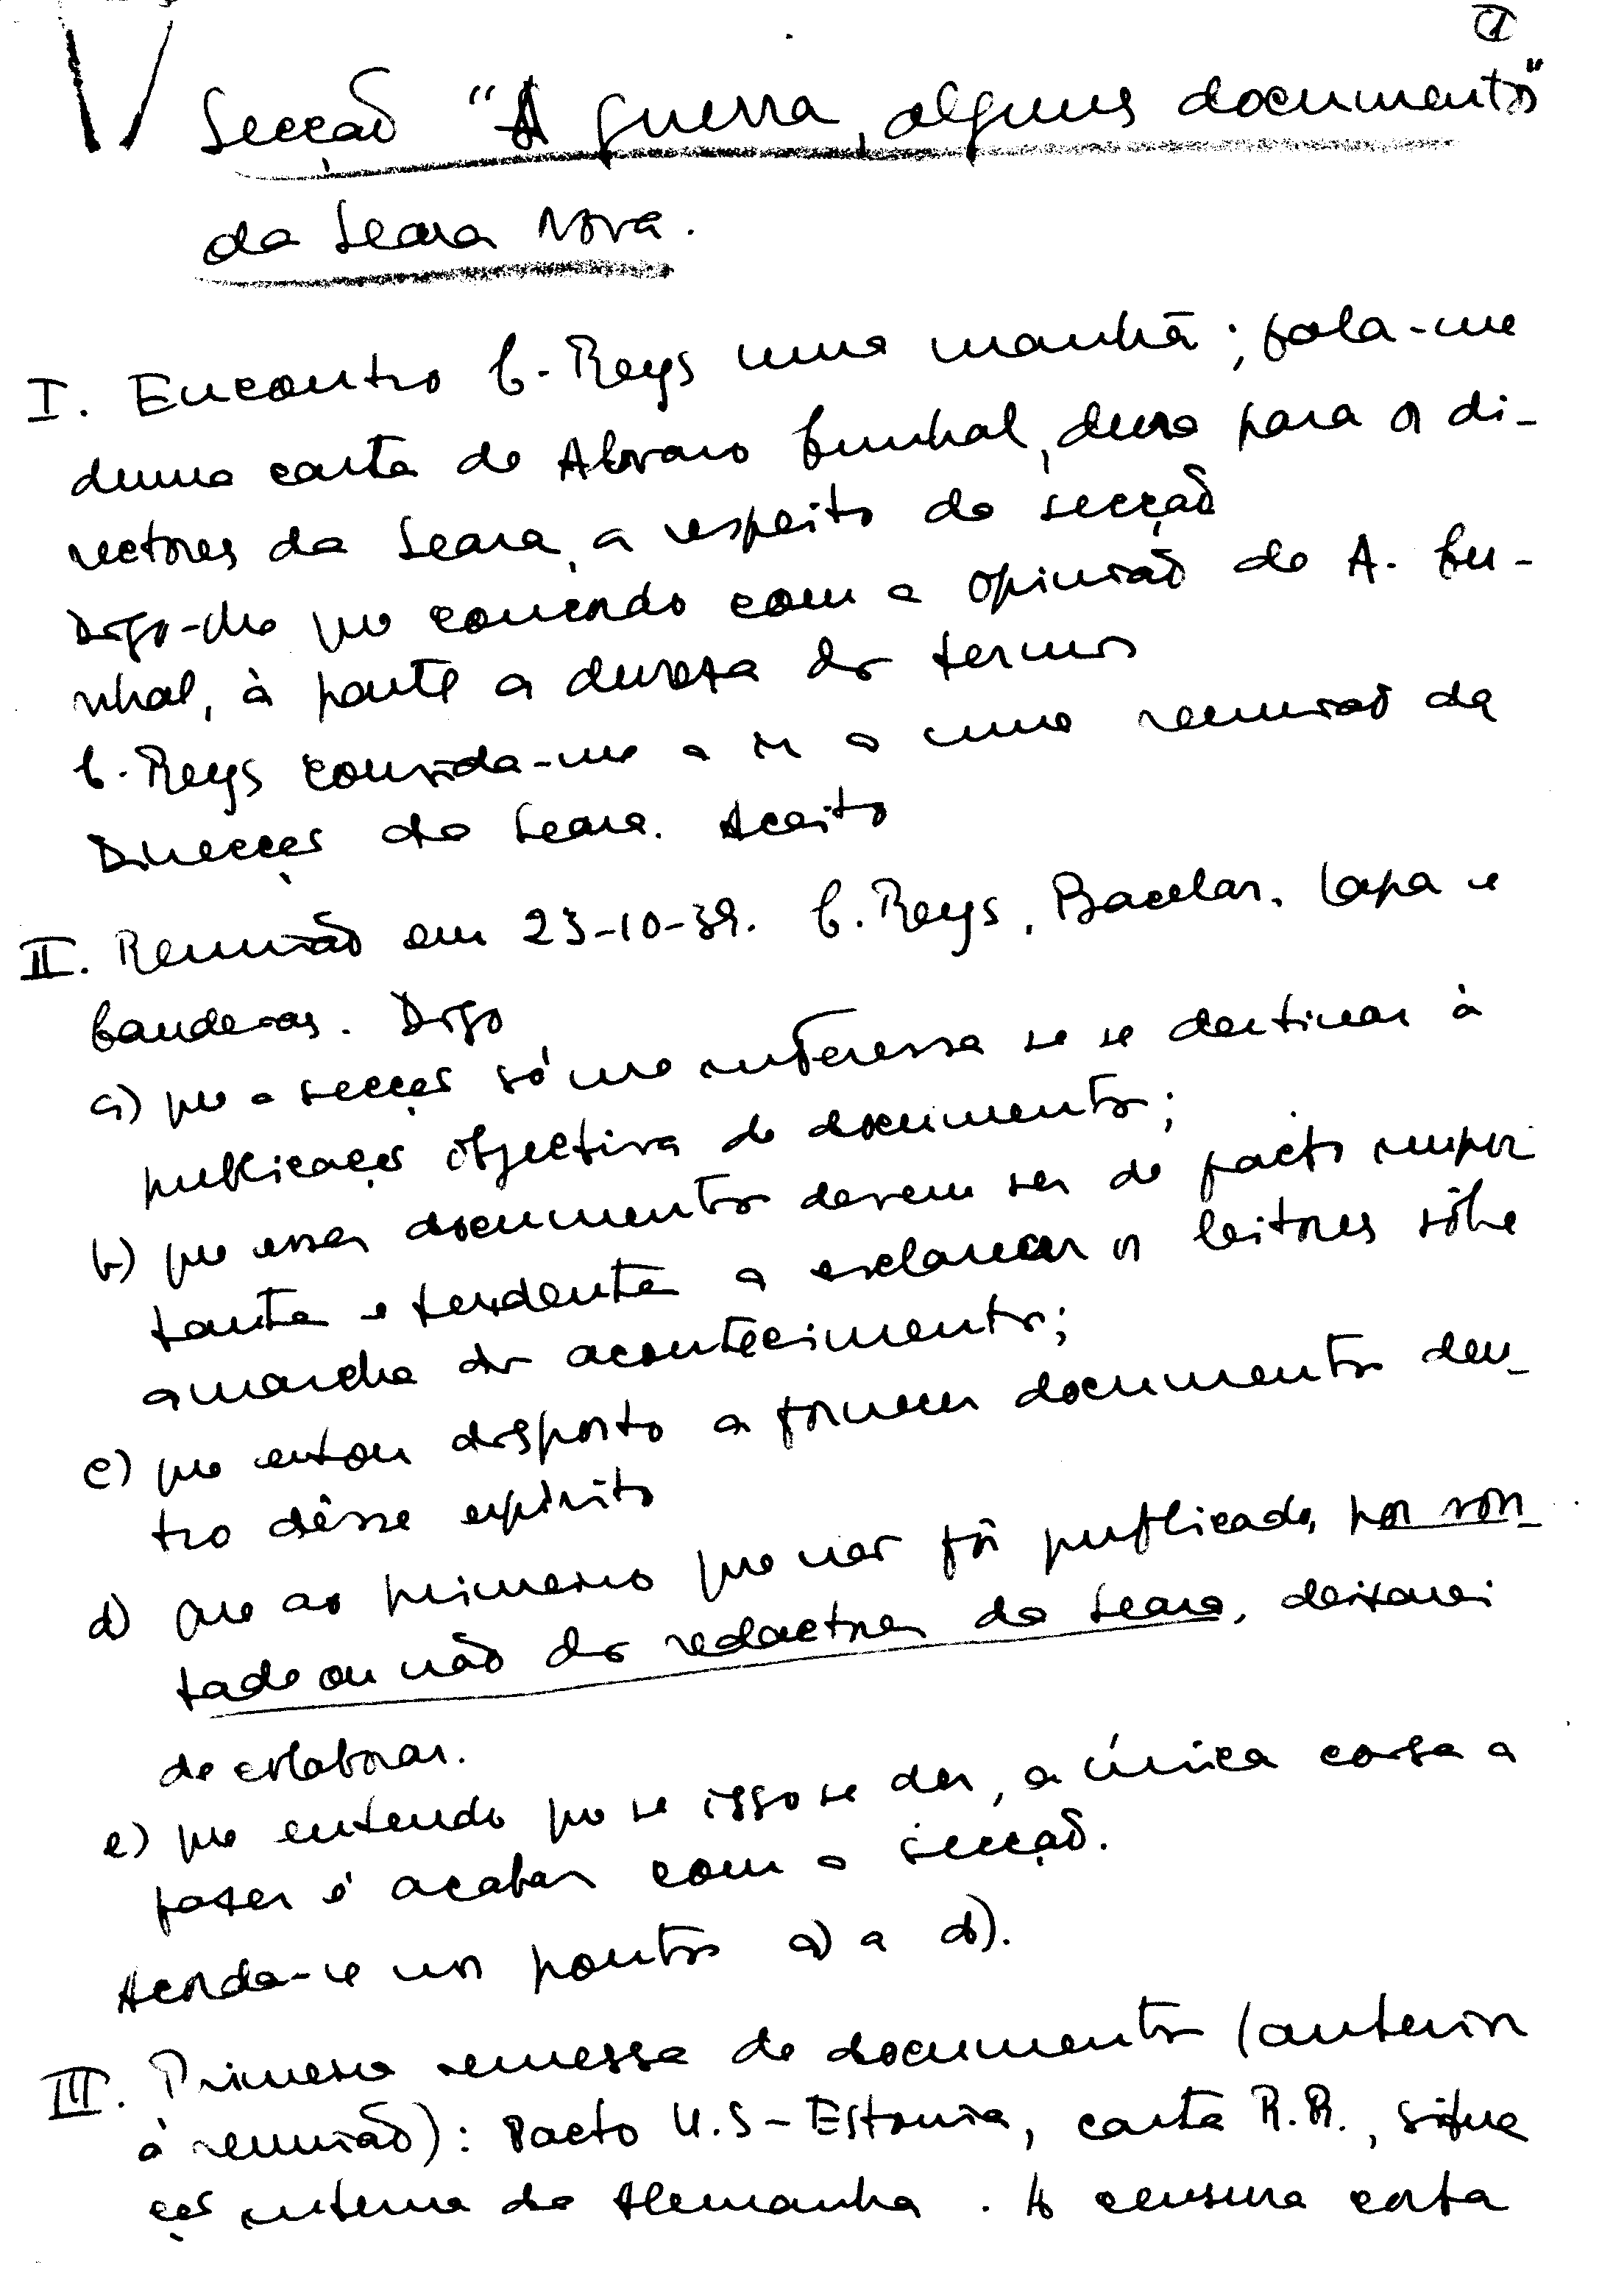 I
Secção "A guerra, alguns documentos"
da Seara Nova.
I. Encontro C. Reys uma manhã; fala-me
duma carta de Alvaro Cunhal, dura para os di-
rectores da Seara, a respeito da secção
Digo-lhe que concordo com a opinião de A. Cu-
nhal, à parte a dureza dos termos
C. Reys convida-me a ir a uma reunião da
Direcção da Seara. Aceito
II. Reunião em 23-10-39. C. Reys, Bacelar, Lapa e
Bandeiras. Digo
a) que a secção só me interessa se se destinar à
publicação objectiva de documentos;
b) que esses documentos devem ser de facto impor
tantes e tendentes a esclarecer os leitores sôbre
a marcha dos acontecimentos;
c) que estou disposto a fornecer documentos den-
tro dêsse espírito
d) que ao primeiro que não fôr publicado, por von-
tade ou não dos redactores da Seara, deixarei
de colaborar.
e) que entendo que se isso se der, a única coisa a
fazer é acabar com a secção.
Acorda-se nos pontos a) a d).
III. Primeira remessa de documentos (anterior
à reunião): Pacto U.S-Estonia, carta R.R., situa
ção interna da Alemanha. A censura corta